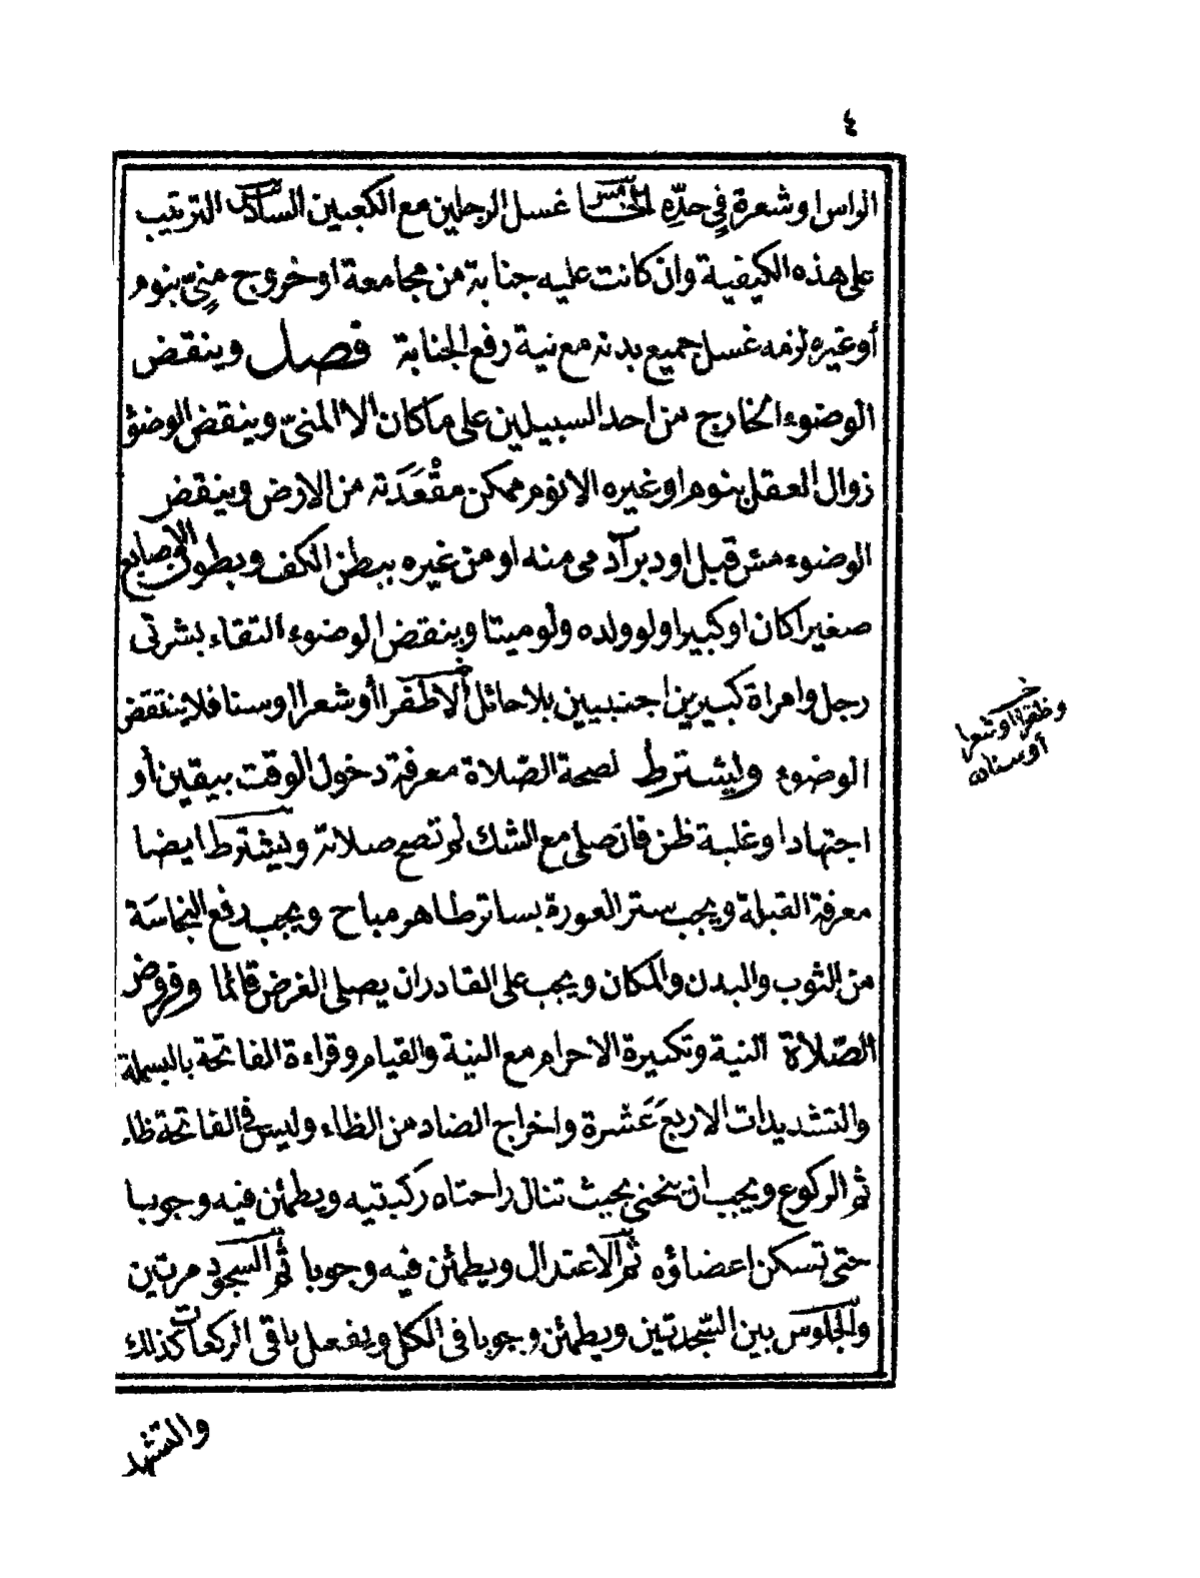 ٤
الراس او شعرة في حدّه الخامس غسل الرجلين مع الكعبين السادس الترتيب
على هذه الكيفية وان كانت عليه جنابة من مجامعة او خروج منيّ بنوم
أو غيره لزمه غسل جميع بدنه مع نية رفع الجنابة فصل وينقض
الوضوء الخارج من احد السبيلين على ما كان الا المنيّ وينقض الوضؤ
زوال العقل بنوم او غيره الا نوم ممكن مقْعَدَته من الارض وينقض
الوضوء مسّ قبل او دبر آدمي منه او من غيره ببطن الكف وبطون الاصابع
صغيرا كان او كبيرا ولو ولده ولو ميتا وينقض الوضوء التقاء بشرتي
رجل وامراة كبيرين اجنبيين بلا حائل الا ظفرا أو شعرا اوسنا فلا ينتقض
الوضوء ويشترط لصحة الصّلاة معرفة دخول الوقت بيقين أو
اجتهاد او غلبة ظن فان صلى مع الشك لم تصح صلاته ويشترط ايضا
معرفة القبلة ويجب ستر العورة بساتر طاهر مباح ويجب رفع النجاسَة
من الثوب والبدن والمكان ويجب على القادر ان يصلي الفرض قائما وفروض
الصّلاة النية وتكبيرة الاحرام مع النية والقيام وقراءة الفاتحة بالبسملة
والتشديدات الاربعَ عَشرة واخراج الضاد من الظاء وليس في الفاتحة ظاء
ثم الركوع ويجب ان ينحني بحيث تنال راحتاه ركبتيه ويطمئن فيه وجوبا
حتى تسكن اعضاؤه ثم الاعتدال ويطمئن فيه وجوبا ثم السجود مرتين
والجلوس بين السّجدتين ويطمئن وجوبا في الكل ويفعل باقي الركعات كذلك
والتشهد
خ
وظفرا او شعرا
أو سنا